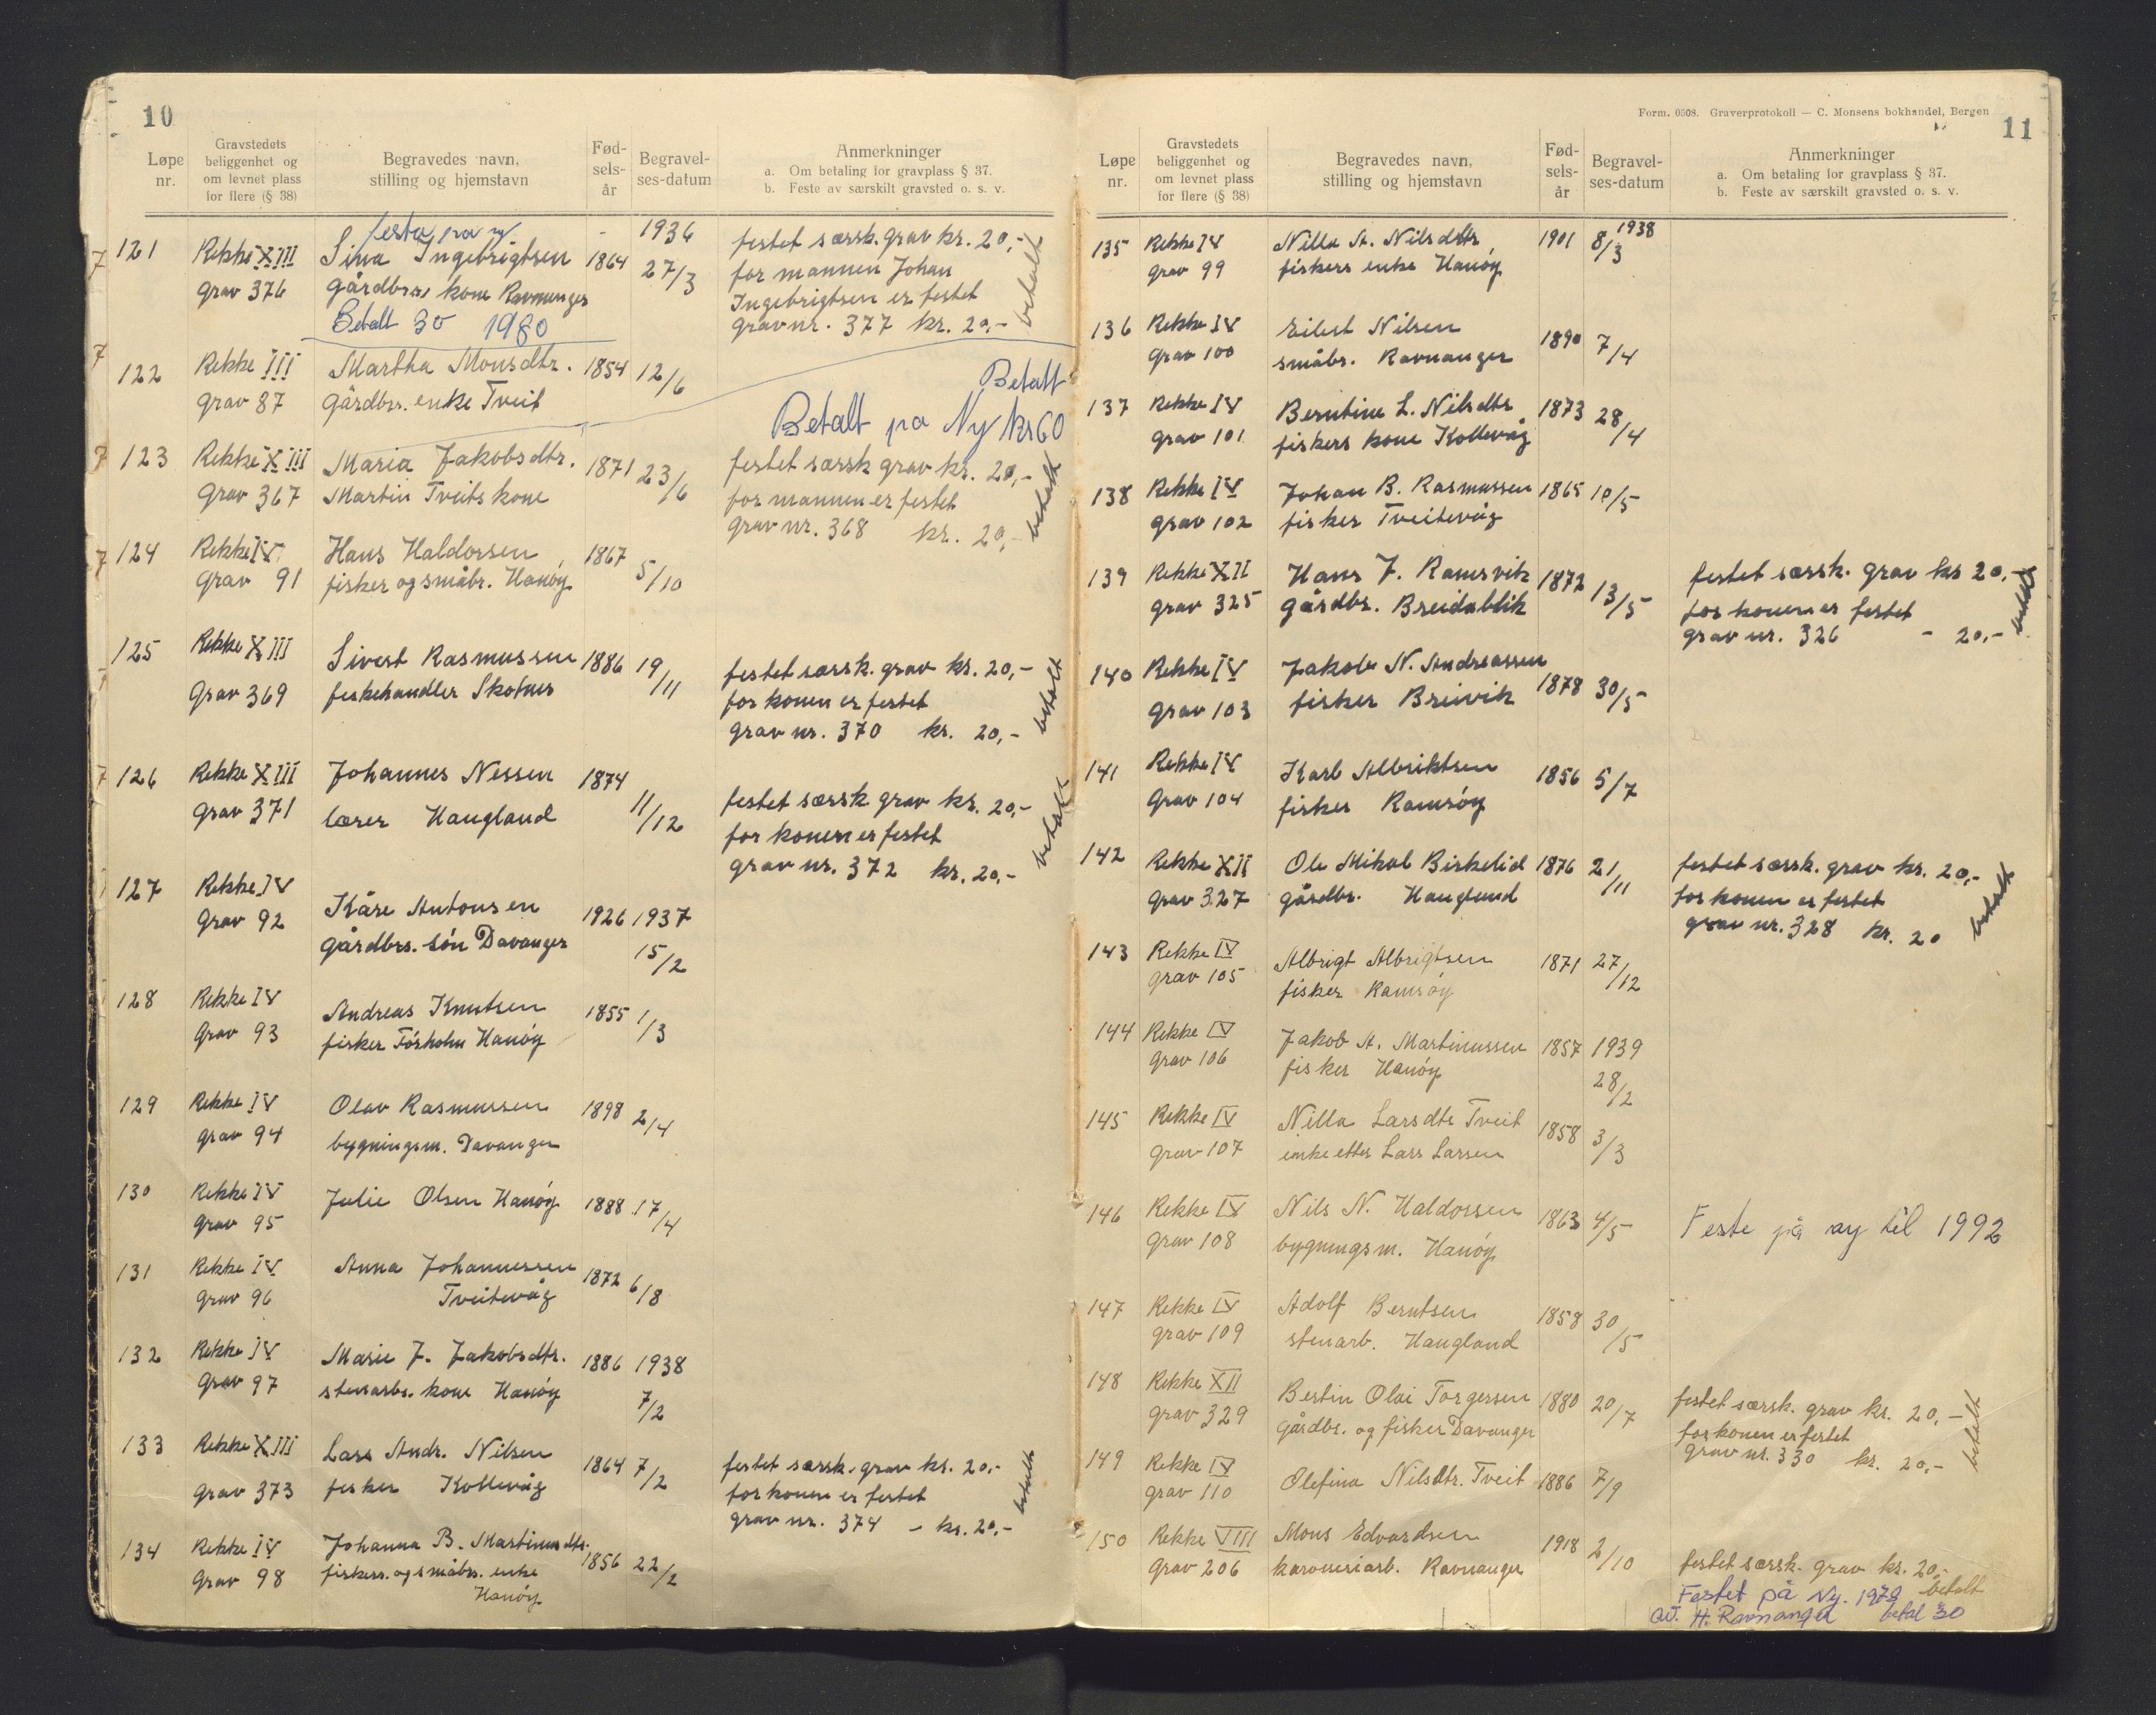 10
Løpe nr.
Gravstedets beliggenhet og om levnet plass for flere (§ 38)
Begravedes navn, stilling og hjemstavn
Fød-sels-år
Begravel-ses-datum
Anmerkninger
a. Om betaling for gravplass § 37.
b. Feste av særskilt gravsted o. s. v.
festa på ny - 1936
121 Rekke XIII Sina Ingebrigtsen 1864 27/3 festet særsk. grav kr. 20,-
grav 376 gårdbrs. kone Ravnanger for mannen Johan
Ingebrigtsen er festet betalt
Betalt 30 1980 grav nr. 377 kr. 20,-
122 Rekke III Martha Monsdtr. 1854 12/6
grav 87 gårdbrs. enke Tveit Betalt
Betalt på Ny kr 60
123 Rekke XIII Maria Jakobsdtr. 1871 23/6 festet særsk grav kr. 20,-
grav 367 Martin Tveits kone for mannen er festet betalt
grav nr. 368 kr. 20,-
124 Rekke IV Hans Haldorsen 1867 5/10
grav 91 fisker og småbr. Hanøy
125 Rekke XIII Sivert Rasmussen 1886 19/11 festet særsk. grav kr. 20,-
grav 369 fiskehandler Skotnes for konen er festet betalt
grav nr. 370 kr. 20,-
126 Rekke XIII Johannes Nessen 1874 11/12 festet særsk grav kr. 20,-
grav 371 lærer Haugland for konen er festet betalt
grav nr. 372 kr. 20,-
127 Rekke IV Kåre Antonsen 1926 1937
grav 92 gårdbrs. søn Davanger 15/2
128 Rekke IV Andreas Knutsen 1855 1/3
grav 93 fisker Hanøy
129 Rekke IV Olav Rasmussen 1898 2/4
grav 94 bygningsm. Davanger
130 Rekke IV Julie Olsen Hanøy 1888 17/4
grav 95
131 Rekke IV Anna Johannessen 1872 6/8
grav 96 Tveitevåg
132 Rekke IV Marie J. Jakobsdtr. 1886 1938
grav 97 stenarbs. kone Hanøy 7/2
133 Rekke XIII Lars Andr. Nilsen 1864 7/2 festet særsk. grav kr. 20,-
grav 373 fisker Kollevåg for konen er festet betalt
grav nr. 374 - kr. 20,-
134 Rekke IV Johanna B. Martinusdtr. 1856 22/2
grav 98 fiskers. og småbrs. enke
Hanøy
Form. 0508. Graverprotokoll — C. Monsens bokhandel, Bergen
11
Løpe nr.
Gravstedets beliggenhet og om levnet plass for flere (§ 38)
Begravedes navn, stilling og hjemstavn
Fød-sels-år
Begravel-ses-datum
Anmerkninger
a. Om betaling for gravplass § 37.
b. Feste av særskilt gravsted o. s. v.
1938
135 Rekke IV Nilla A. Nilsdtr, 1901 8/3
grav 99 fiskers enke Hanøy
136 Rekke IV Eilert Nilsen 1890 7/4
grav 100 småbr. Ravnanger
137 Rekke IV Berntine L. Nilsdtr. 1873 28/4
grav 101 fiskers kone Kollevåg
138 Rekke IV Johan B. Rasmussen 1865 10/5
grav 102 fisker Tveitevåg
139 Rekke XII Hans J. Ramsvik 1872 13/5 festet særsk. grav kr 20,-
grav 325 gårdbr. Breidablik for konen er festet betalt
grav nr. 326 - 20,-
140 Rekke IV Jakob N. Andreassen 1878 30/5
grav 103 fisker Breivik
141 Rekke IV Karl Albriktsen 1856 5/7
grav 104 fisker Ramsøy
142 Rekke XII Ole Mikal Birkelid 1876 21/11 festet særsk. grav kr. 20,-
grav 327 gårdbr. Haugland for konen er festet betalt
grav nr. 328 kr. 20
143 Rekke IV Albrigt Albrigtsen 1871 27/12
grav 105 fisker Ramsøy
144 Rekke IV Jakob A. Martinussen 1857 1939
grav 106 fisker Hanøy 28/2
145 Rekke IV Nilla Larsdtr Tveit 1858 3/3
grav 107 enke etter Lars Larsen
146 Rekke IV Nils N. Haldorsen 1863 4/5 Feste på ny til 1992
grav 108 bygningsm. Hanøy
147 Rekke IV Adolf Berntsen 1858 30/5
grav 109 stenarb. Haugland
148 Rekke XII Bertin Olai Torgersen 1880 20/7 festet særsk. grav kr. 20,-
grav 329 gårdbr. og fisker Davanger for konen er festet betalt
grav nr. 330 kr. 20,-
149 Rekke IV Olefina Nilsdtr. Tveit 1886 7/9
grav 110
150 Rekke VIII Mons Edvardsen 1918 2/10
grav 206 Ravnanger festet særsk. grav kr. 20,-
betalt
Festet på Ny. 1979
av. H. Ravnanger betal 30